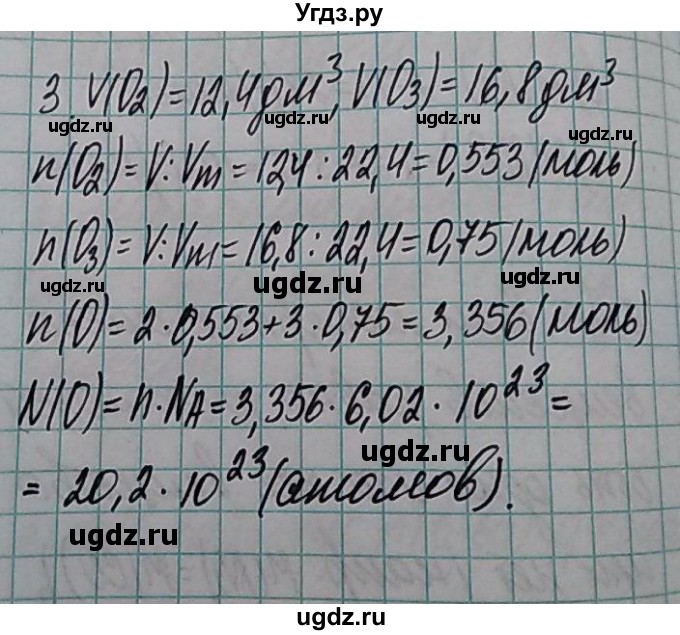 Угдз.ру
3. V(O₂)=12,4дм³, V(O₃)=16,8дм³
ugdz.ru ugdz.ru ugdz.ru ugdz.ru
n(O₂)=V:Vm=12,4:22,4=0,553(моль)
ugdz.ru ugdz.ru
n(O₃)=V:Vm=16,8:22,4=0,75(моль)
ugdz.ru ugdz.ru ugdz.ru
n(O)=2·0,553+3·0,75=3,356(моль)
ugdz.ru ugdz.ru
N(O)=n·NA=3,356·6,02·10²³=
ugdz.ru
=20,2·10²³(атомов).
ugdz.ru
ugdz.ru